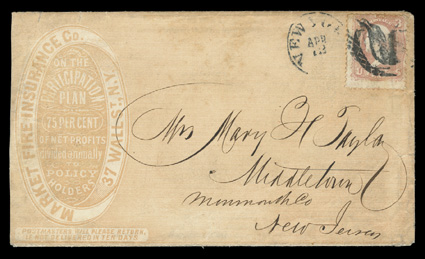 MARKET FIRE INSURANCE Co.
37 WALL St. N.Y.
ON THE
PARTICIPATION
PLAN
75 PER CENT
OF NET PROFITS
divided annually
TO
POLICY
HOLDERS
POSTMASTERS WILL PLEASE RETURN,
IF NOT DELIVERED IN TEN DAYS
NEW YORK
APR
12
Mrs Mary H Taylor
Middletown
Monmouth Co
New Jersey